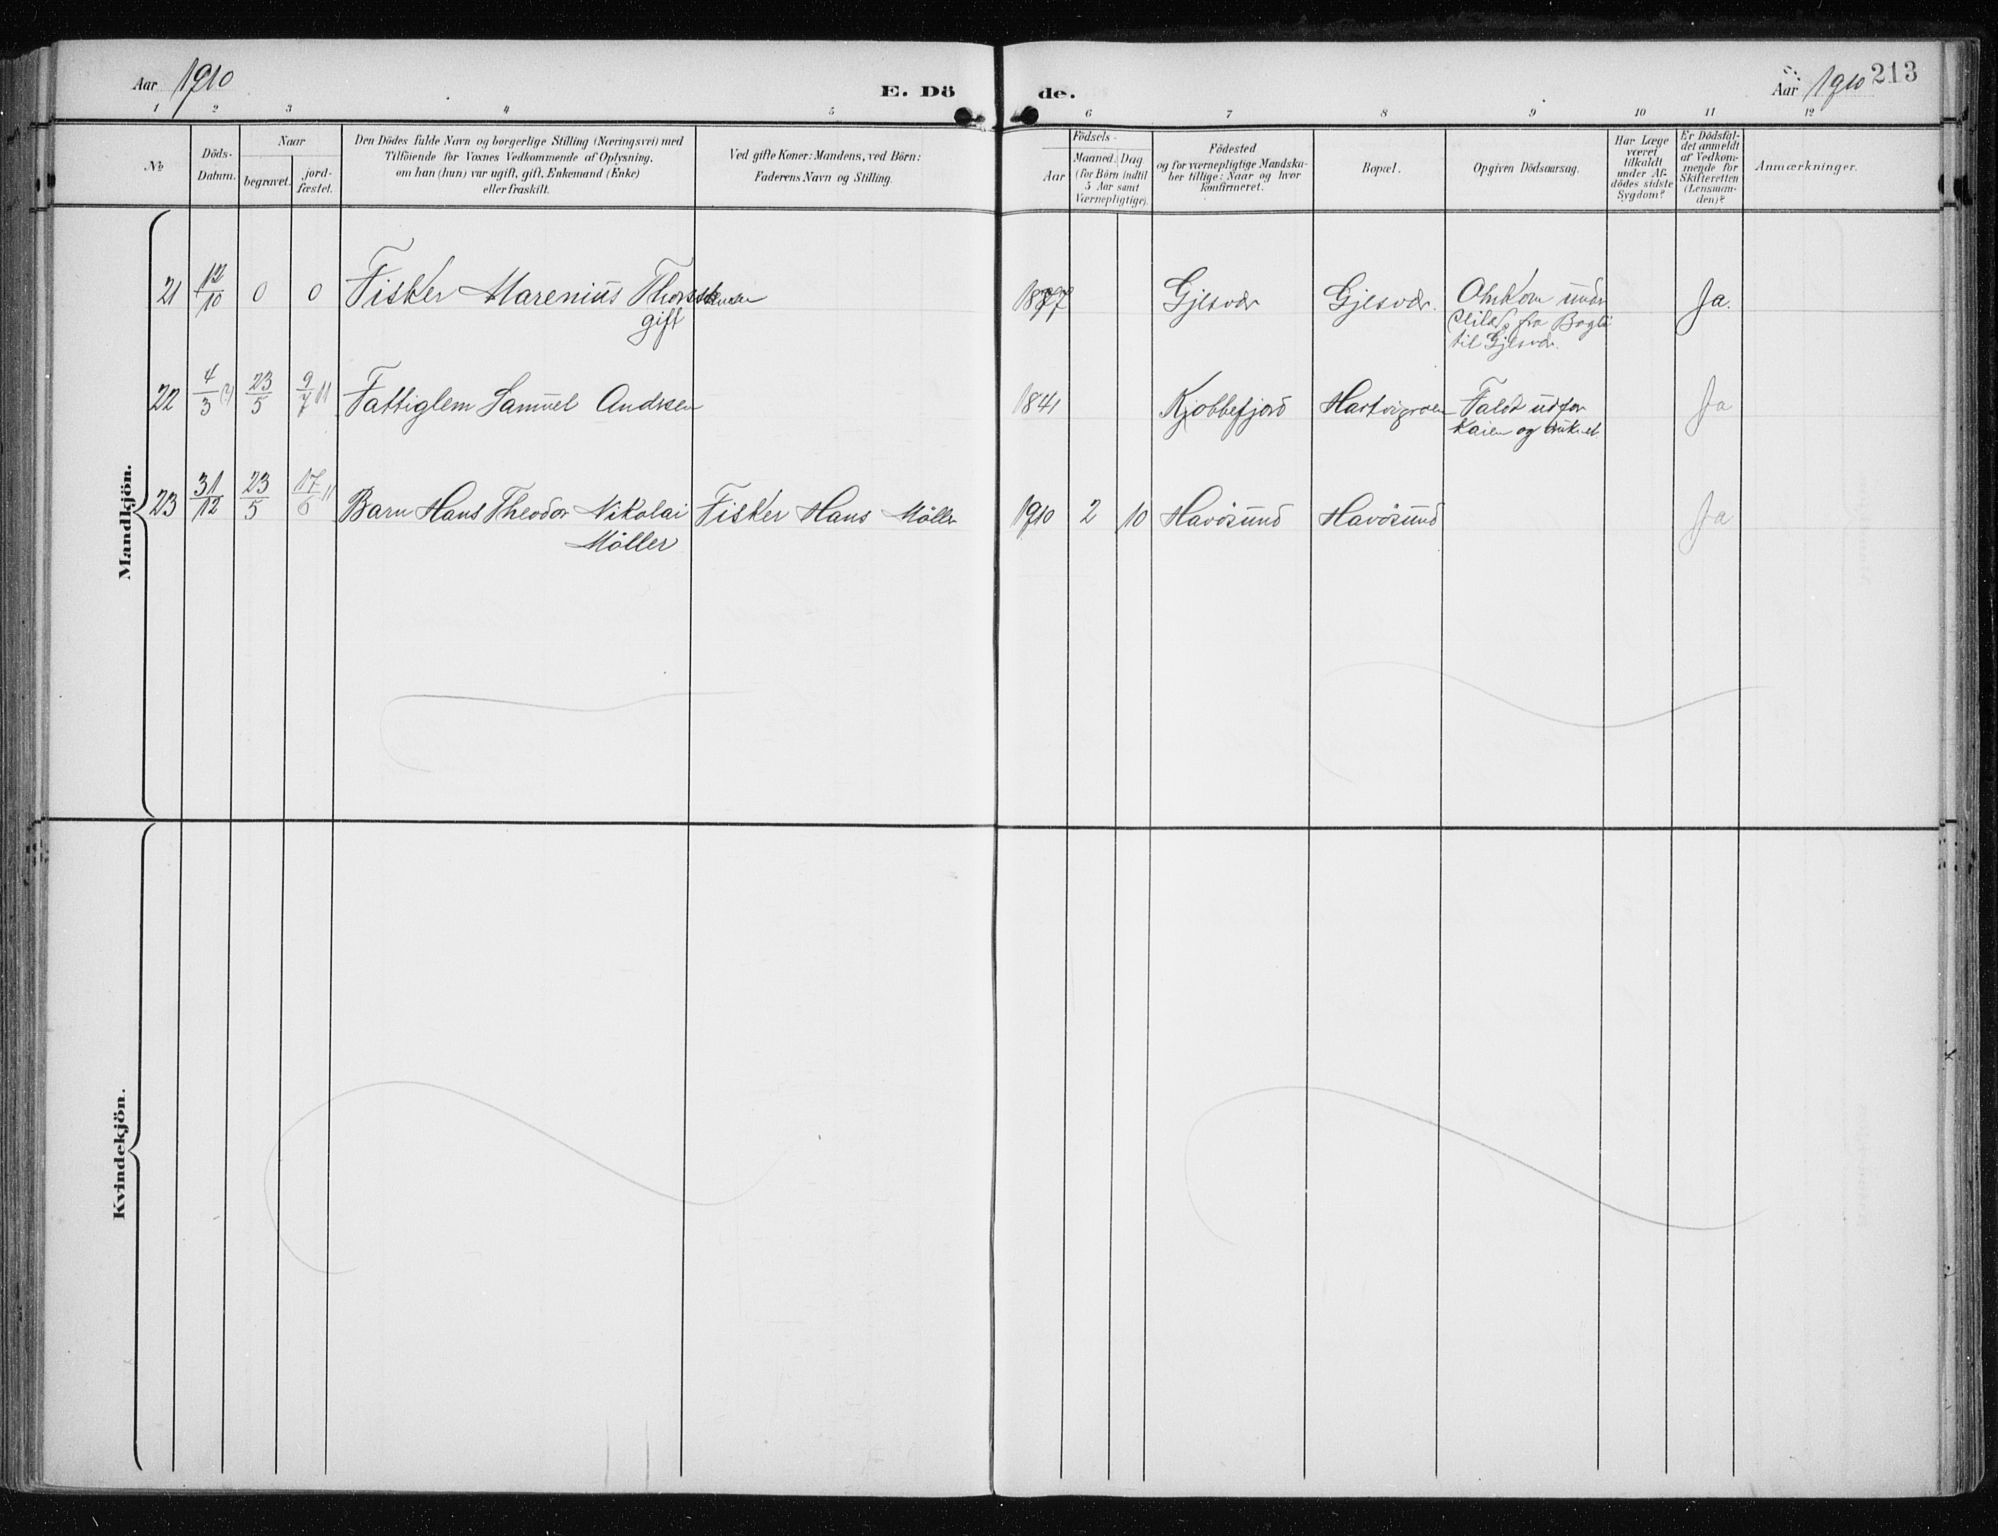 Aar 1910
E. Dö
de.
Aar 1910
213
1 2 3 4 5 6 7 8 9 10 11 12
No
Döds-
Datum.
Naar
begravet.
jord-
fæstet.
Den Dödes fulde Navn og borgerlige Stilling (Næringsvei) med
Tilföiende for Voxnes Vedkommende af Oplysning,
om han (hun) var ugift, gift, Enkemand (Enke)
eller fraskilt.
Ved gifte Koner: Mandens, ved Börn:
Faderens Navn og Stilling.
Födsels-
Aar
Maaned. Dag
(for Börn indtil
5 Aar samt
Værnepligtige).
Födested
og for værnepligtige Mandska-
ber tillige: Naar og hvor
konfirmeret.
Bopæl.
Opgiven Dödsaarsag.
Har Læge
været
tilkaldt
under Af-
dödes sidste
Sygdom?
Er Dödsfal-
det anmeldt
af Vedkom-
mende for
Skifteretten
(Lensman-
den)?
Anmærkninger.
Mandkjön.
21 12/10 0 0 Fisker Marenius 18 Gjesvær Gjesvær. Omkom under
gift Ja.
Seilads fra
til Gjesvær.
22 4/3 (?) 23/5 9/7 11 Fattiglem Samuel Andrsen 1841 Kjøllefjord Faldt udfor
Kaien og druknet Ja
23 31/12 23/5 17/6 11 Barn Hans Theodor Nikolai Fisker Hans Möller 1910 2 10 Havösund Havösund Ja
Möller
Kvindekjön.